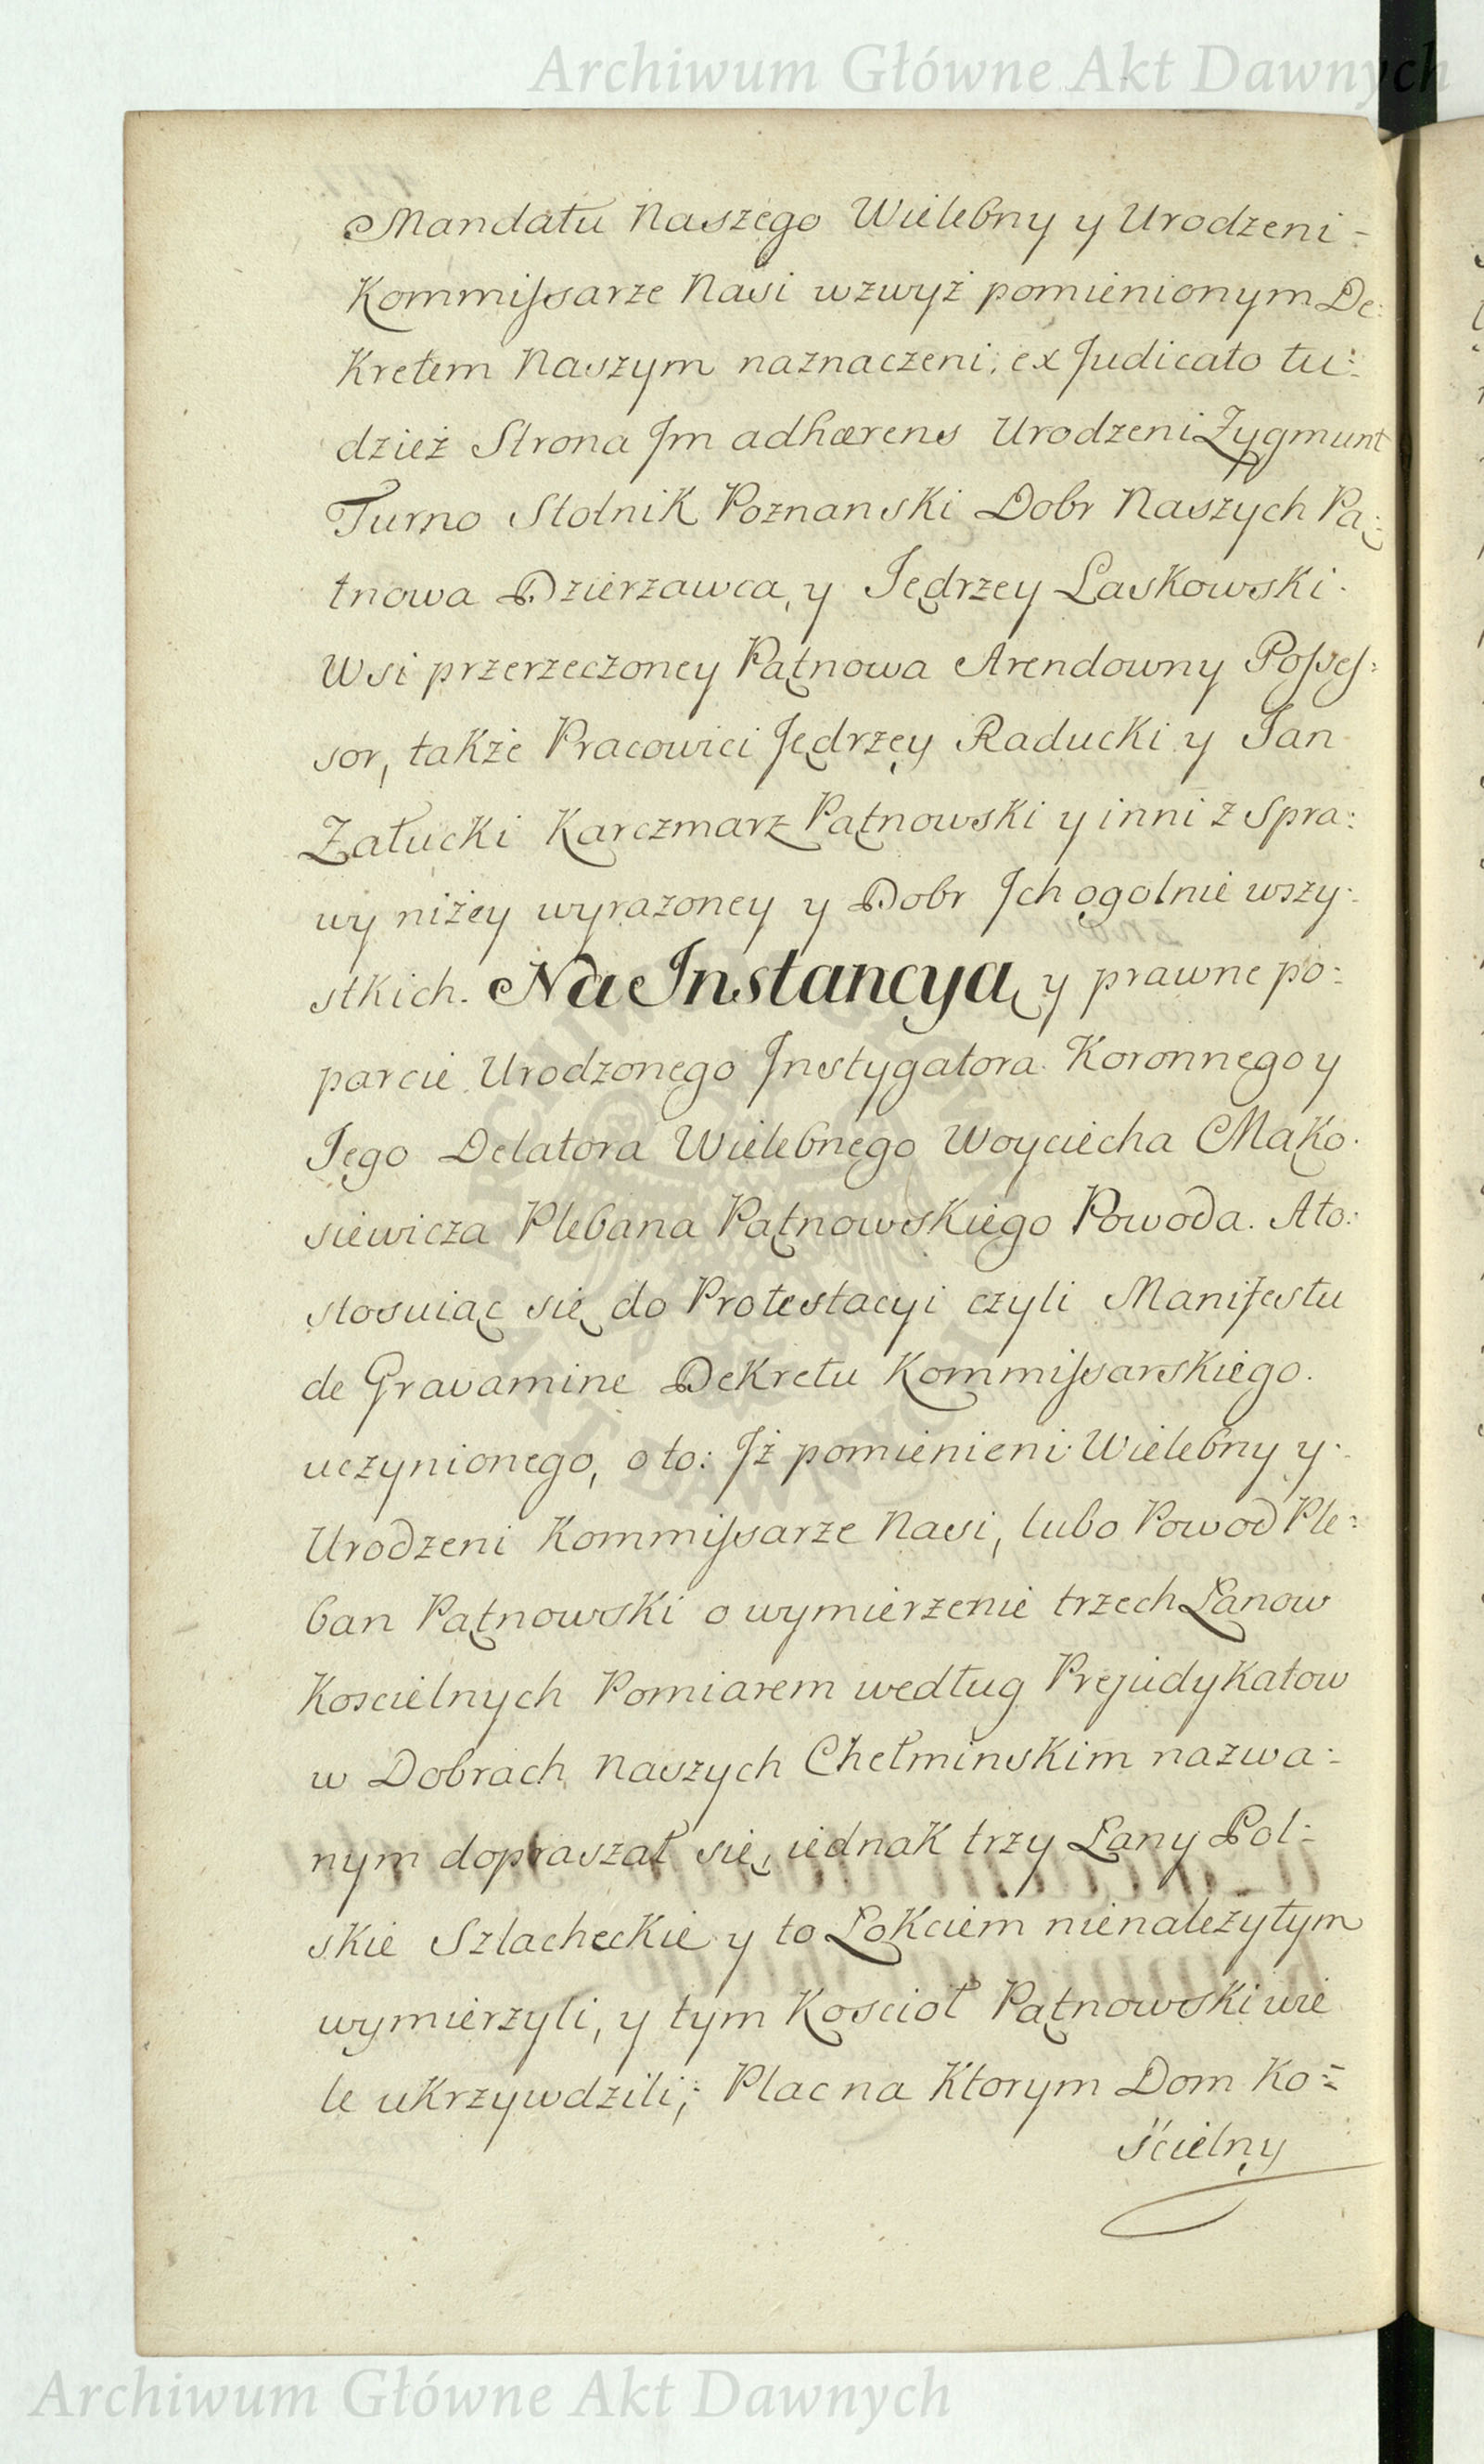 Archiwum Główne Akt Dawnych
Mandatu Naszego Wielebny y Urodzeni -
Kommissarze Nasi wzwyż pomienionym De:
Kretem Naszym naznaczeni, ex Judicato tu:
dzież Strona Jm adhærens Urodzeni Zygmunt
Turno Stolnik Poznanski Dobr Naszych Pą:
tnowa Dzierzawca, y Jędrzey Laskowski.
Wsi przerzeczoney Pątnowa Arendowny Posses:
sor, także Pracowici Jędrzęy Raducki y Jan
Załucki Karczmarz Pątnowski y inni z Spra:
wy niżey wyrazoney y Dobr Jch ogolnie wszy:
stkich. Na Instancyą y prawne po:
parcie Urodzonego Jnstygatora Koronnego y
Jego Delatora Wielebnego Woyciecha Mako:
siewicza Plebana Pątnowskiego Powoda. A to:
stosuiąc się do Protestacyi czyli Manifestu
de Gravamine Dekretu Kommissarskiego.
uczynionego, o to: Jż pomienieni Wielebny y
Urodzeni Kommissarze Nasi, lubo Powod Ple:
ban Pątnowski o wymierzenie trzech Lanow
Koscielnych Pomiarem według Prejudykatow
w Dobrach Naszych Chełminskim nazwa:
nym dopraszał się, iednak trzy Lany Pol:
skie Szlacheckie y to Lokciem nienależytym
wymierzyli, y tym Koscioł Pątnowski wie
le ukrzywdzili; Plac na Ktorym Dom Ko:
ścielny
ARCHIWUM GŁÓWNE AKT DAWNYCH
Archiwum Główne Akt Dawnych